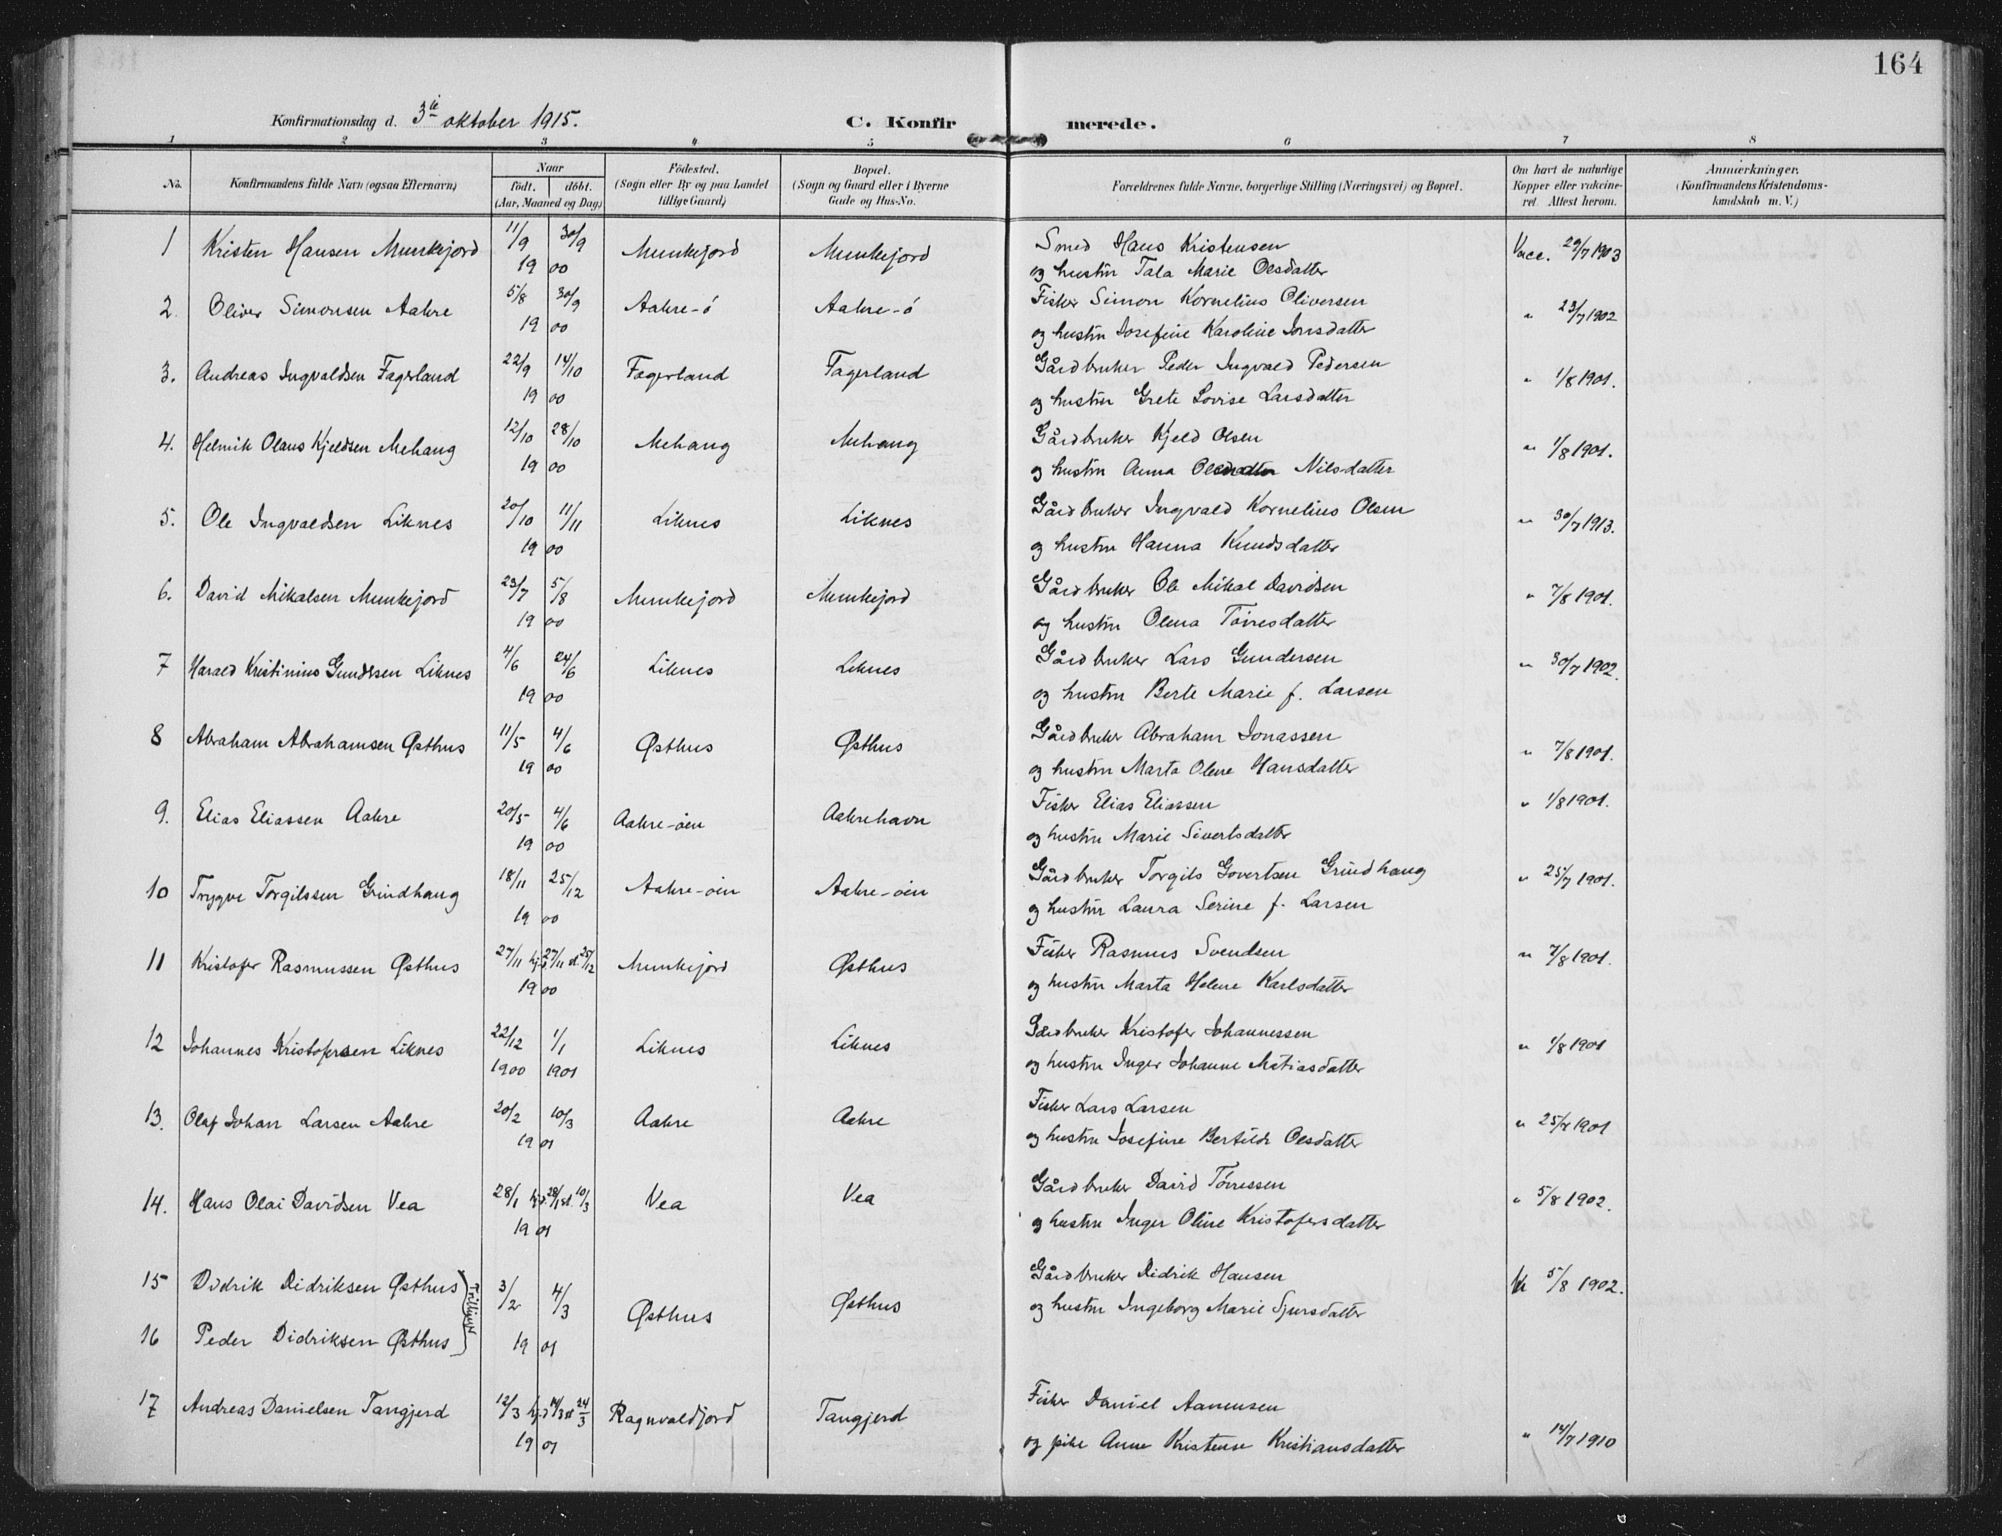 164
Konfirmationsdag d. 3die oktober 1915.
C. Konfirmerede.
1 2 3 4 5 6 7 8
No. Konfirmandens fulde Navn (ogsaa Efternavn) Naar født. døbt. (Aar, Maaned og Dag) Fødested. (Sogn eller By og paa Landet tillige Gaard) Bopæl. (Sogn og Gaard eller i Byerne Gade og Hus-No. Forældrenes fulde Navne, borgerlige Stilling (Næringsvei) og Bopæl. Om havt de naturlige Kopper eller vakcineret. Attest herom. Anmærkninger. (Konfirmandens Kristendomskundskab m. V.)
1 Kristen Hansen Munkejord 11/9 30/9 Munkejord Munkejord Smed Hans Kristensen Vacc. 29/7 1903
19 00 og hustru Tala Marie Olsdatter
2 Oliver Simonsen Aakre 5/8 30/9 Aakre-ö Aakre-ö Fisker Simon Kornelius Oliversen " 23/7 1902
19 00 og hustru Josefine Karoline Jonsdatter
3. Andreas Ingvaldsen Fagerland 22/9 14/10 Fagerland Fagerland Gårdbruker Peder Ingvald Pedersen " 1/8 1901.
19 00 og hustru Grete Lovise Larsdatter
4. Helmik Olaus Kjeldsen Mehang 12/10 28/10 Mehang Mehang Gårdbruker Kjeld Olsen " 1/8 1901.
19 00 og hustru Anna Nilsdatter
5. Ole Ingvaldsen Liknes 20/10 11/11 Liknes Liknes Gårdbruker Ingvald Kornelius Olsen " 30/7 1913.
19 00 og hustru Hanna Knudsdatter
6. David Mikalsen Munkejord 23/7 5/8 Munkejord Munkejord Gårdbruker Ole Mikal Davidsen " 7/8 1901.
19 00 og hustru Olena Tørresdatter
7 Harald Kristinius Gundersen Liknes 4/6 24/6 Liknes Liknes Gårdbruker Lars Gundersen " 30/7 1902.
19 00 og hustru Berte Marie f. Larsen
8 Abraham Abrahamsen Østhus 11/5 4/6 Østhus Østhus Gårdbruker Abraham Jonassen " 7/8 1901.
19 00 og hustru Marta Olene Hansdatter
9. Elias Eliassen Aakre 20/5 4/6 Aakre-öen Aakrehavn Fisker Elias Eliassen " 1/8 1901.
19 00 og hustru Marie Sivertsdatter
10 Trygve Torgilssen Grindhaug 18/11 25/12 Aakre-öen Aakre-öen Gårdbruker Torgils Govertsen Grindhaug " 25/7 1901.
19 00 og hustru Laura Serine f. Larsen
11 Kristofer Rasmussen Østhus 27/11 hj.d. 27/11 st. 25/12 Munkejord Østhus Fisker Rasmus Svendsen " 7/8 1901.
19 00 og hustru Marta Helene Karlsdatter
12 Johannes Kristofersen Liknes 22/12 1/1 Liknes Liknes Gårdbruker Kristofer Johannessen " 1/8 1901
1900 1901 og hustru Inger Johanne Matiasdatter
13. Olaf Johan Larsen Aakre 20/2 10/3 Aakre Aakre Fisker Lars Larsen " 25/7 1901
19 01 og hustru Josefine Bertilde Olsdatter
14. Hans Olai Davidsen Vea 28/1 hj.d. 28/1 st. 10/3 Vea Vea Gårdbruker David Tørressen " 5/8 1902.
19 01 og hustru Inger Oline Kristofersdatter
15 Didrik Didriksen Østhus 3/2 4/3 Østhus Østhus Gårdbruker Didrik Hansen 5/8 1902.
Trillinger og hustru Ingeborg Marie Sjursdatter
16 Peder Didriksen Østhus 19 01
17 Andreas Danielsen Tangjerd 12/3 hj.d. 14/3 st. 24/3 Ragnvaldjord Tangjerd Fisker Daniel Aanensen " 14/7 1910
19 01 og pike Anne Kristense Kristiansdatter